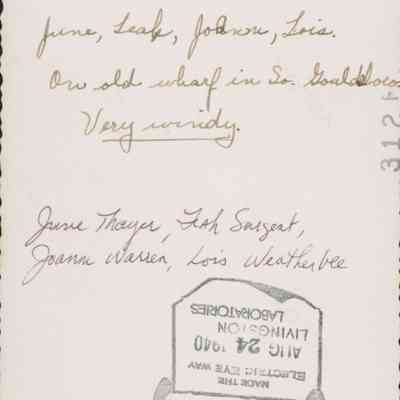 June, Leah, Joanne, Lois.
On old wharf in So. Gouldsboro
Very windy.
312
June Thayer, Leah Sargent,
Joanne Warren, Lois Weatherbee
MADE THE
ELECTRIC EYE WAY
AUG 24 1940
LIVINGSTON
LABORATORIES